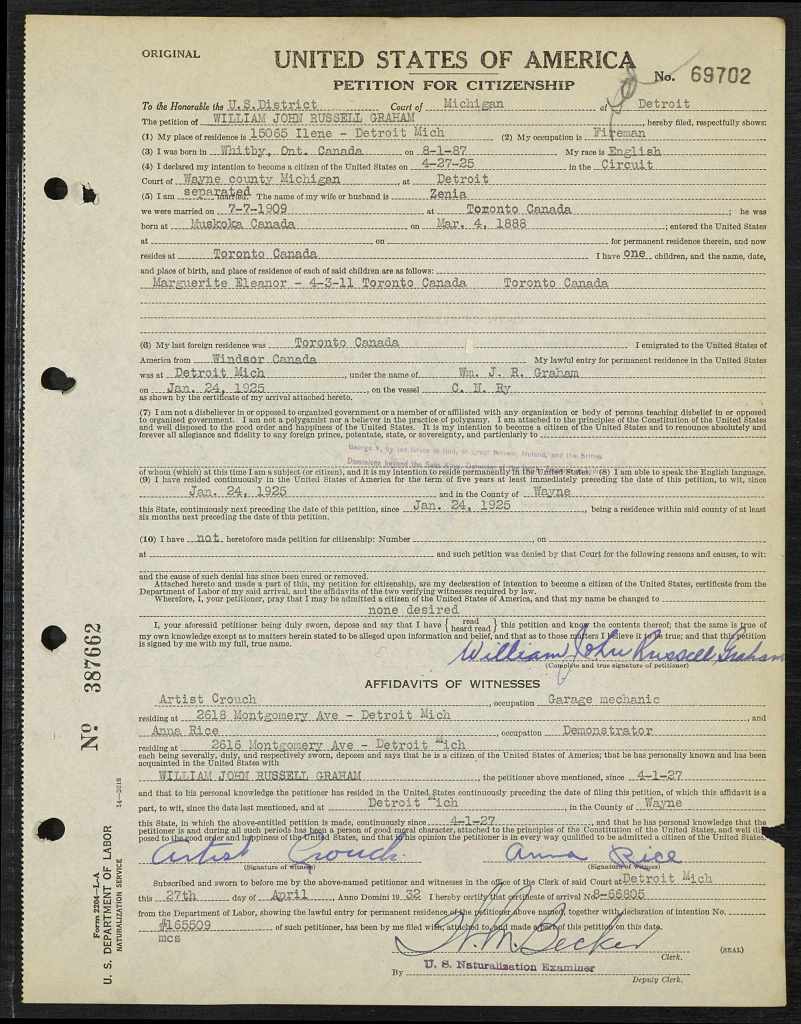 ORIGINAL
UNITED STATES OF AMERICA
PETITION FOR CITIZENSHIP
No. 69702
To the Honorable the U.S.District Court of Michigan at Detroit
The petition of WILLIAM JOHN RUSSELL GRAHAM, hereby filed, respectfully shows:
(1) My place of residence is 15065 Ilene - Detroit Mich (2) My occupation is Fireman
(3) I was born in Whitby, Ont. Canada on 8-1-87 My race is English
(4) I declared my intention to become a citizen of the United States on 4-27-25 in the Circuit
Court of Wayne county Michigan, at Detroit
(5) I am separated married. The name of my wife or husband is Zenia
we were married on 7-7-1909 at Toronto Canada; he was
born at Muskoka Canada on Mar. 4, 1888; entered the United States
at on for permanent residence therein, and now
resides at Toronto Canada I have one children, and the name, date,
and place of birth, and place of residence of each of said children are as follows:
Marguerite Eleanor - 4-3-11 Toronto Canada Toronto Canada
(6) My last foreign residence was Toronto Canada I emigrated to the United States of
America from Windsor Canada My lawful entry for permanent residence in the United States
was at Detroit Mich, under the name of Wm. J. R. Graham
on Jan. 24, 1925, on the vessel C. N. Ry
as shown by the certificate of my arrival attached hereto.
(7) I am not a disbeliever in or opposed to organized government or a member of or affiliated with any organization or body of persons teaching disbelief in or opposed
to organized government. I am not a polygamist nor a believer in the practice of polygamy. I am attached to the principles of the Constitution of the United States
and well disposed to the good order and happiness of the United States. It is my intention to become a citizen of the United States and to renounce absolutely and
forever all allegiance and fidelity to any foreign prince, potentate, state, or sovereignty, and particularly to
George V, by the Grace of God, of Great Britain, Ireland, and the British
Dominions beyond the Seas King, Defender of the Faith,
of whom (which) at this time I am a subject (or citizen), and it is my intention to reside permanently in the United States. (8) I am able to speak the English language.
(9) I have resided continuously in the United States of America for the term of five years at least immediately preceding the date of this petition, to wit, since
Jan. 24, 1925 and in the County of Wayne
this State, continuously next preceding the date of this petition, since Jan. 24, 1925, being a residence within said county of at least
six months next preceding the date of this petition.
(10) I have not heretofore made petition for citizenship: Number , on
at and such petition was denied by that Court for the following reasons and causes, to wit:
and the cause of such denial has since been cured or removed.
Attached hereto and made a part of this, my petition for citizenship, are my declaration of intention to become a citizen of the United States, certificate from the
Department of Labor of my said arrival, and the affidavits of the two verifying witnesses required by law.
Wherefore, I, your petitioner, pray that I may be admitted a citizen of the United States, and that my name be changed to
none desired
I, your aforesaid petitioner being duly sworn, depose and say that I have {read heard read} this petition and know the contents thereof; that the same is true of
my own knowledge except as to matters herein stated to be alleged upon information and belief, and that as to those matters I believe it to be true; and that this petition
is signed by me with my full, true name.
William John Russell Graham
(Complete and true signature of petitioner)
AFFIDAVITS OF WITNESSES
Artist Crouch, occupation Garage mechanic
residing at 2618 Montgomery Ave - Detroit Mich, and
Anna Rice, occupation Demonstrator
residing at 2616 Montgomery Ave - Detroit Mich
each being severally, duly, and respectively sworn, deposes and says that he is a citizen of the United States of America; that he has personally known and has been
acquainted in the United States with
WILLIAM JOHN RUSSELL GRAHAM, the petitioner above mentioned, since 4-1-27
and that to his personal knowledge the petitioner has resided in the United States continuously preceding the date of filing this petition, of which this affidavit is a
part, to wit, since the date last mentioned, and at Detroit Mich, in the County of Wayne
this State, in which the above-entitled petition is made, continuously since 4-1-27, and that he has personal knowledge that the
petitioner is and during all such periods has been a person of good moral character, attached to the principles of the Constitution of the United States, and well dis
posed to the good order and happiness of the United States, and that in his opinion the petitioner is in every way qualified to be admitted a citizen of the United States.
Artist Crouch. Anna Rice
(Signature of witness) (Signature of witness)
Subscribed and sworn to before me by the above-named petitioner and witnesses in the office of the Clerk of said Court at Detroit Mich
this 27th day of April, Anno Domini 1932 I hereby certify that certificate of arrival No. 8-66805
from the Department of Labor, showing the lawful entry for permanent residence of the petitioner above named, together with declaration of intention No.
#165509 of such petitioner, has been by me filed with, attached to, and made a part of this petition on this date.
mcs
H. M. Becker
Clerk. (SEAL)
U. S. Naturalization Examiner
By
Deputy Clerk.
No 387662
14-2618
Form 2204-L-A
U. S. DEPARTMENT OF LABOR
NATURALIZATION SERVICE